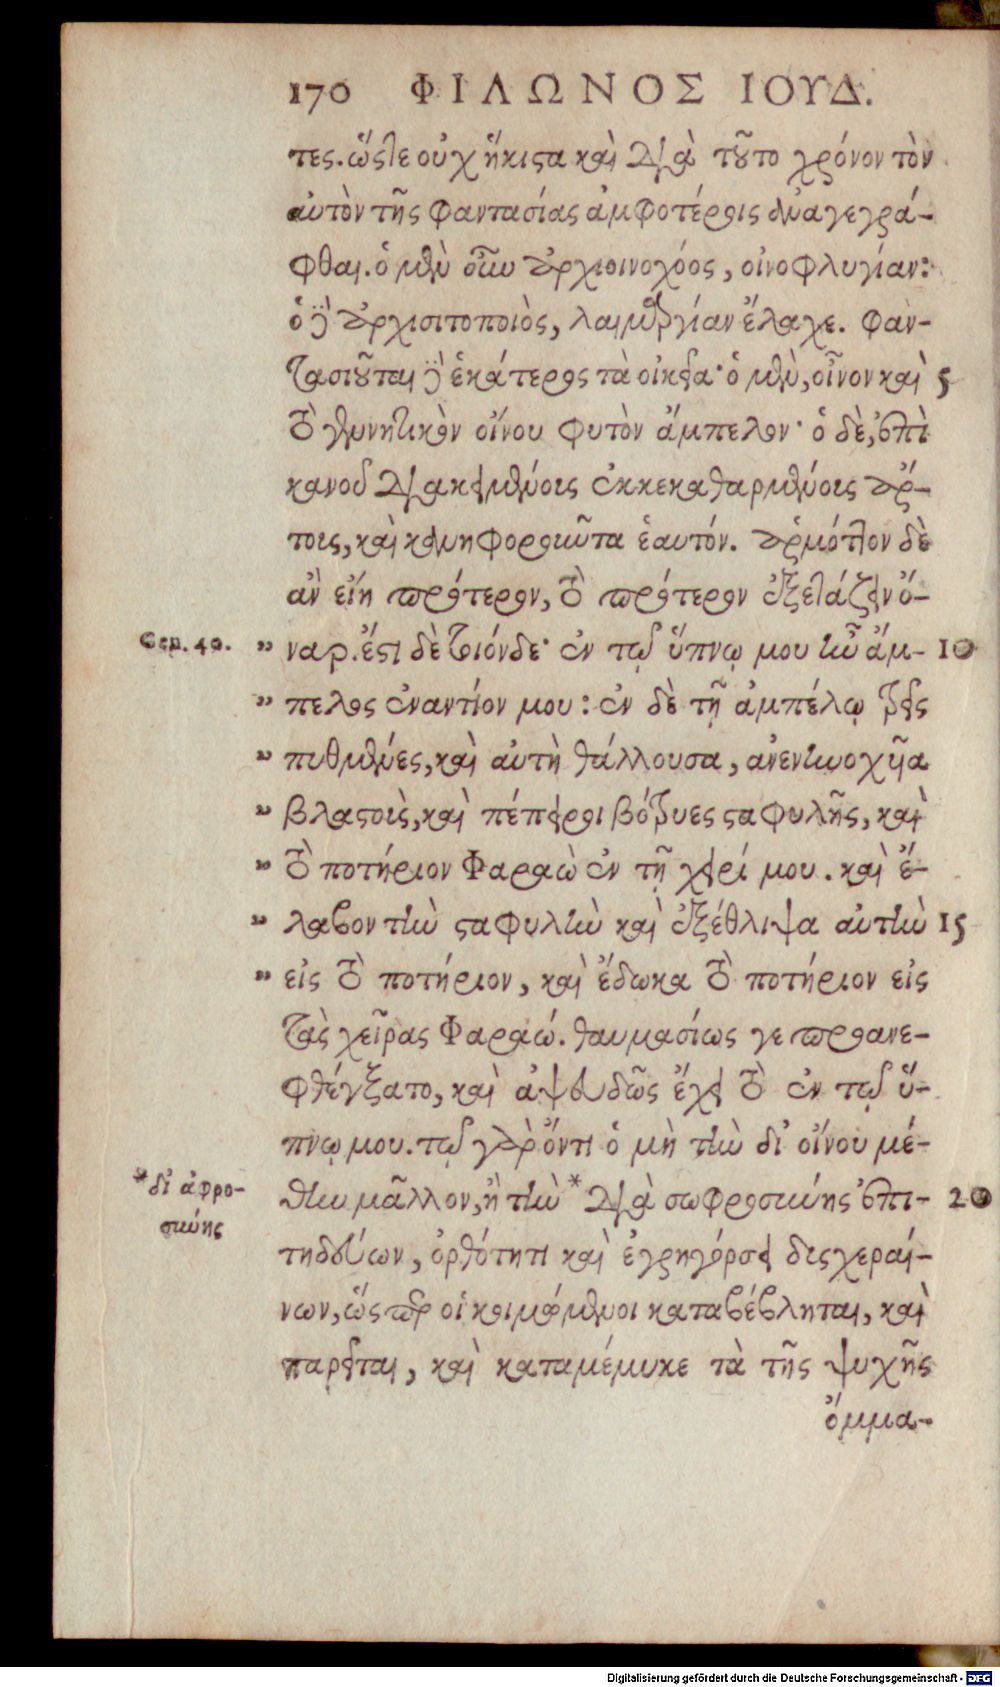 170 ΦΙΛΩΝΟΣ ΙΟΥΔ.
τες. ὥςτε οὐχ ἥκιστα καὶ διὰ τοῦτο χρόνον τὸν
αὐτὸν τῆς φαντασίας ἀμφοτέροις ἀναγεγρά-
φθαι. ὁ μὲν οὖν ἀρχιοινοχόος, οἰνοφλυγίαν:
ὁ δὲ ἀρχισιτοποιὸς, λαιμαργίαν ἔλαχε. φαν-
τασιοῦται δὲ ἑκάτερος τὰ οἰκεῖα· ὁ μὲν, οἶνον καὶ 5
τὸ γεννητικὸν οἴνου φυτὸν ἄμπελον· ὁ δὲ, ἐπὶ
κανοῦ διακειμένοις ἐκκεκαθαρμένοις ἄρ-
τοις, καὶ κανηφοροιῶτα ἑαυτόν. ἁρμόττον δὲ
ἂν εἴη πρότερον, τὸ πρότερον ἐξετάζειν ὄ-
Gen. 40. " ναρ. ἔστι δὲ τοιόνδε· ἐν τῷ ὕπνῳ μου ἦν ἄμ- 10
" πελος ἐναντίον μου: ἐν δὲ τῇ ἀμπέλῳ τρεῖς
" πυθμένες, καὶ αὐτὴ θάλλουσα, ἀνενηνοχῆα
" βλαστοὺς, καὶ πέπειροι βότρυες σταφυλῆς, καὶ
" τὸ ποτήριον Φαραὼ ἐν τῇ χειρί μου. καὶ ἔ-
" λαβον τὴν σταφυλὴν καὶ ἐξέθλιψα αὐτὴν 15
" εἰς τὸ ποτήριον, καὶ ἔδωκα τὸ ποτήριον εἰς
τὰς χεῖρας Φαραώ. θαυμασίως γε προανε-
φθέγξατο, καὶ ἀψευδῶς ἔχει τὸ ἐν τῷ ὕ-
πνῳ μου. τῷ γὰρ ὄντι ὁ μὴ τὴν δι' οἴνου μέ-
*δι' ἀφρο-
σύνης
θην μᾶλλον, ἢ τὴν * διὰ σωφροσύνης ἐπι- 20
τηδεύων, ὀρθότητι καὶ ἐγρηγόρσει δυσχεραί-
νων, ὥσπερ οἱ κοιμώμενοι καταβέβληται, καὶ
παρεῖται, καὶ καταμέμυκε τὰ τῆς ψυχῆς
ὄμμα-
Digitalisierung gefördert durch die Deutsche Forschungsgemeinschaft - DFG